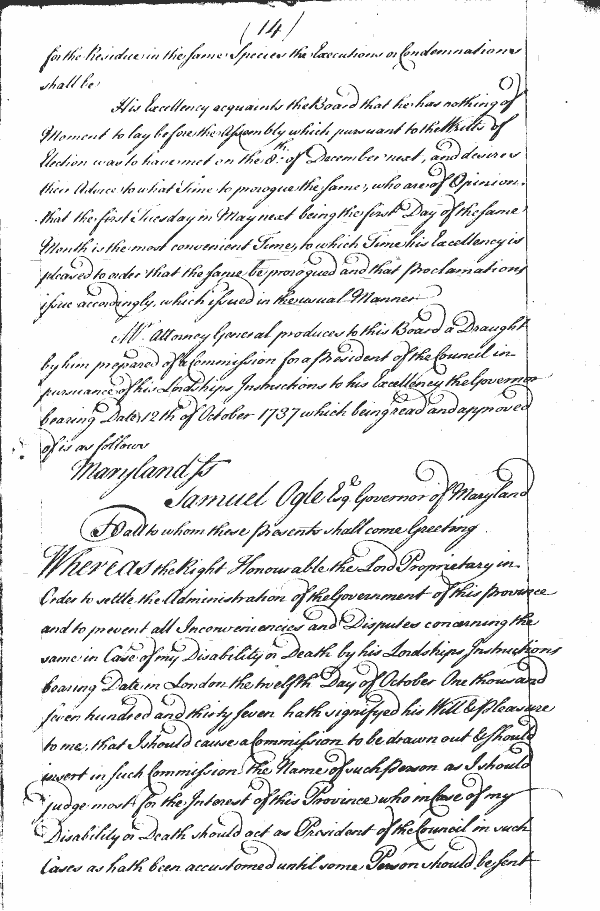 (14)
for the Residue in the same Species the Executions or Condemnations
shall be
His Excellency acquaints the Board that he has nothing of
Moment to lay before the Assembly which pursuant to the Writts of
Election was to have met on the 8th. of December next, and desires
their Advice to what Time to prorogue the same, who are of Opinion,
that the first Tuesday in May next being the first Day of the same
Month is the most convenient Time, to which Time his Excellency is
pleased to order that the same be prorogued and that Proclamations
issue accordingly, which issued in the usual Manner
Mr. Attorney General produces to this Board a Draught
by him prepared of a Commission for a President of the Council in
pursuance of his Lordships Instructions to his Excellency the Governor
bearing Date 12th of October 1737 which being read and approved
of is as follows
Maryland ss
Samuel Ogle Esqr. Governor of Maryland
To all to whom these Presents shall come Greeting
Whereas the Right Honourable the Lord Proprietary in
Order to settle the Administration of the Government of this Province
and to prevent all Inconveniencies and Disputes concerning the
same in Case of my Disability or Death by his Lordships Instructions
bearing Date in London the twelfth Day of October One thousand
seven hundred and thirty seven hath signifyed his Will & Pleasure
to me, that I should cause a Commission to be drawn out & should
insert in such Commission the Name of such Person as I should
judge most for the Interest of this Province who in Case of my
Disability or Death should act as President of the Council in such
Cases as hath been accustomed until some Person should be sent